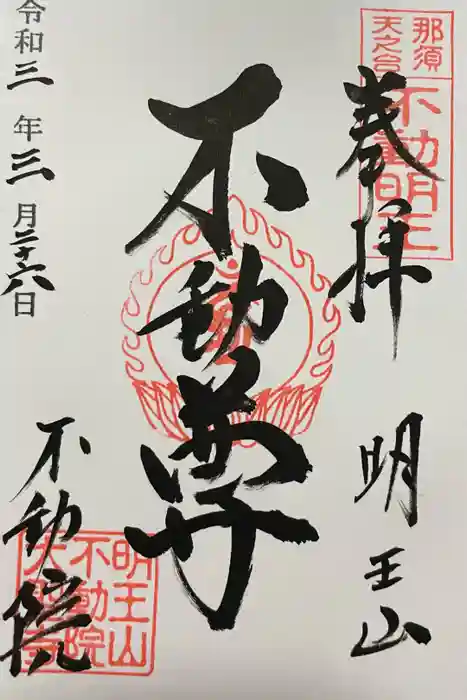 奉拝
明王山
那須
天之台
不動明王
不動尊
令和三年三月二十六日
不動院
明王山
不動院